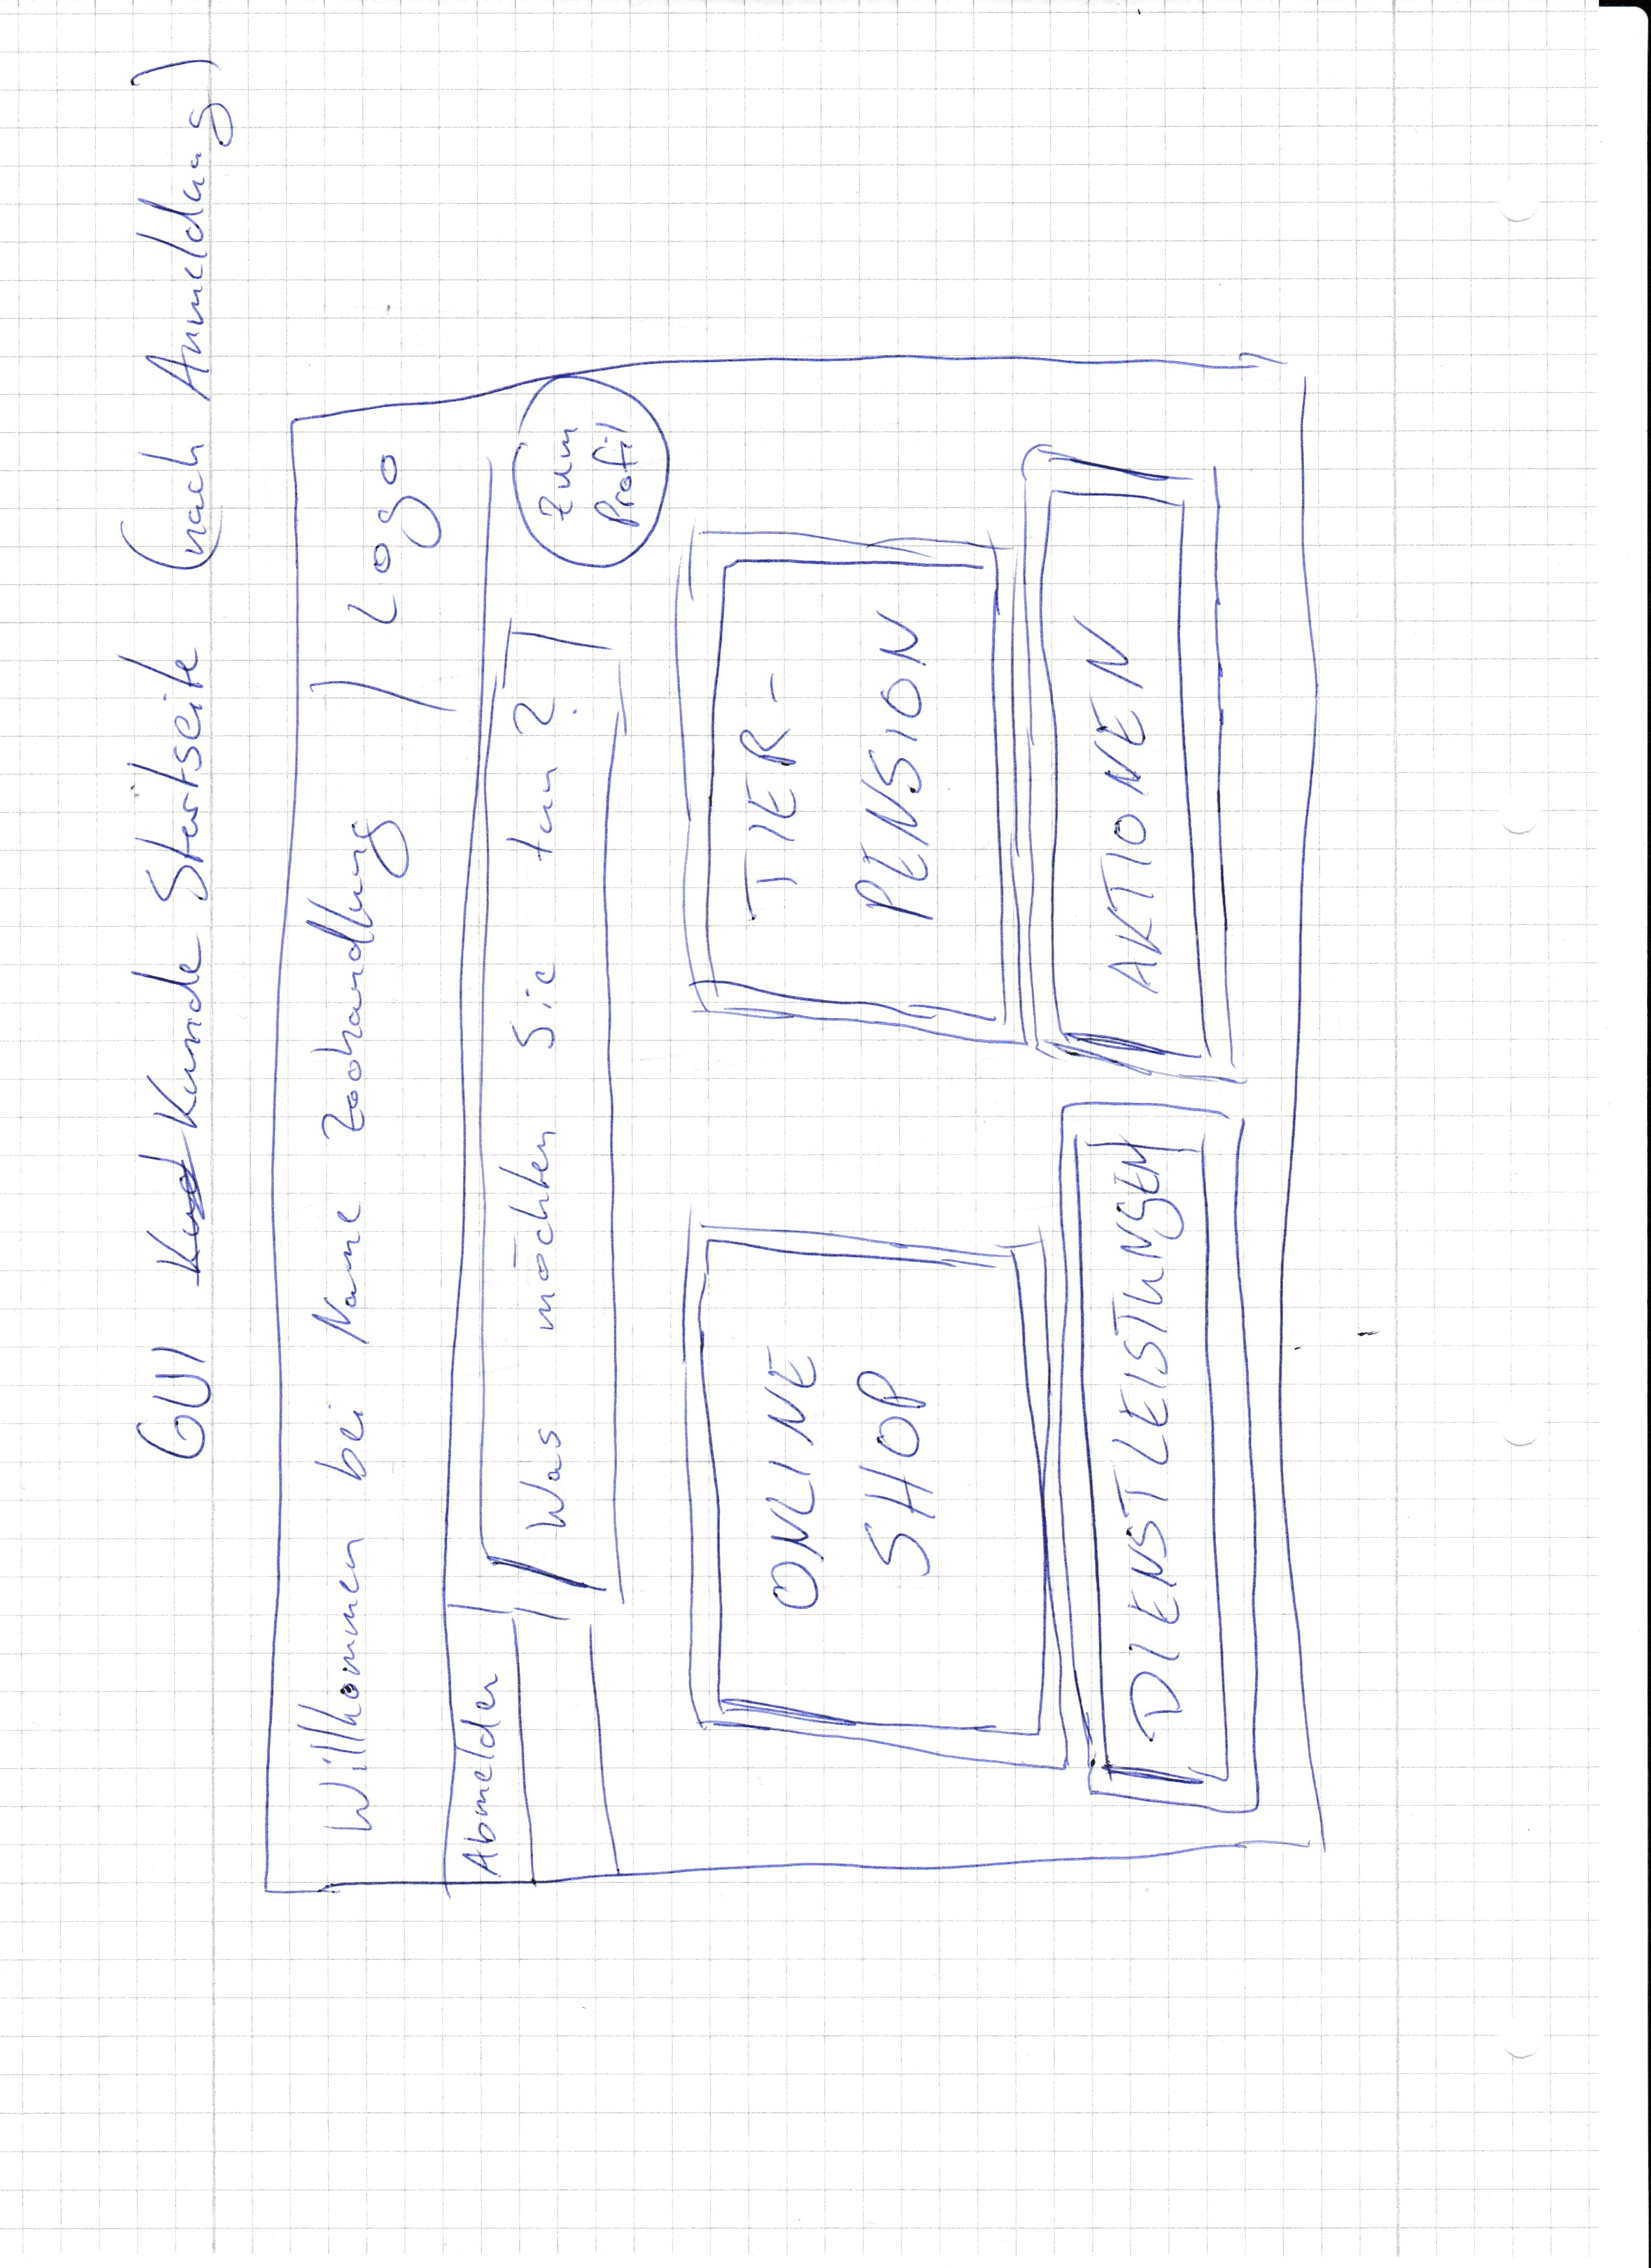 GUI Kund Kunde Startseite (nach Anmeldung)
Willkommen bei Name Zoohandlung
Logo
Abmelden
Was möchten Sie tun?
Zum
Profil
ONLINE
SHOP
TIER-
PENSION
DIENSTLEISTUNGEN
AKTIONEN